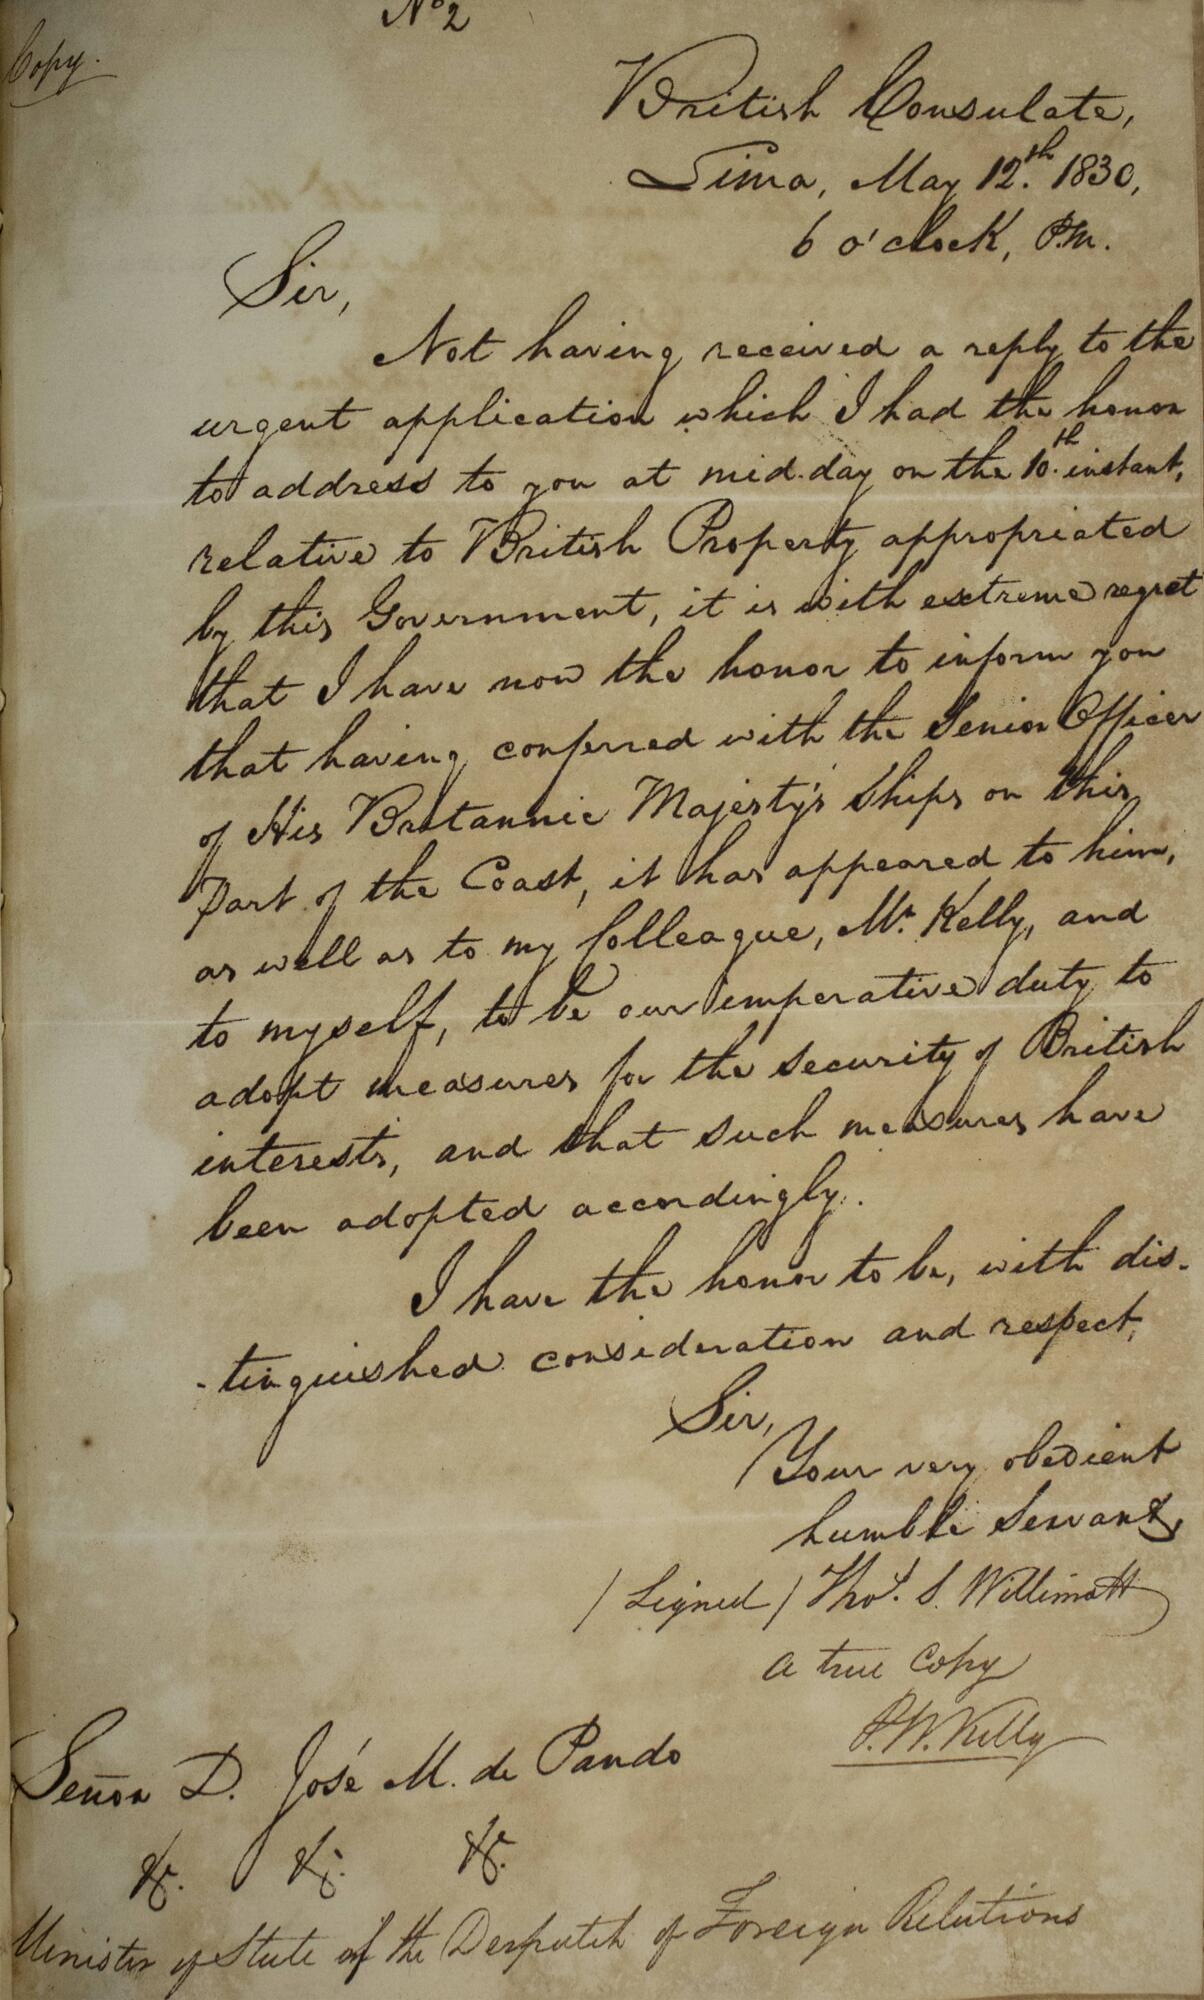 No 2
Copy.
British Consulate,
Lima, May 12.th 1830,
6 o'clock, P.M.
Sir,
Not having received a reply to the
urgent application which I had the honor
to address to you at mid-day on the 10.th instant,
relative to British Property appropriated
by this Government, it is with extreme regret
that I have now the honor to inform you
that having conferred with the Senior Officer
of His Britannic Majesty's Ships on this
part of the Coast, it has appeared to him,
as well as to my Colleague, Mr. Kelly, and
to myself, to be our imperative duty to
adopt measures for the security of British
interests, and that such measures have
been adopted accordingly.
I have the honor to be, with dis-
-tinguished consideration and respect,
Sir,
Your very obedient
humble Servant,
/Signed/ Thos. S. Willimott
a true Copy
P.W. Kelly
Señor D. José M. de Pando
&c. &c. &c.
Minister of State of the Despatch of Foreign Relations